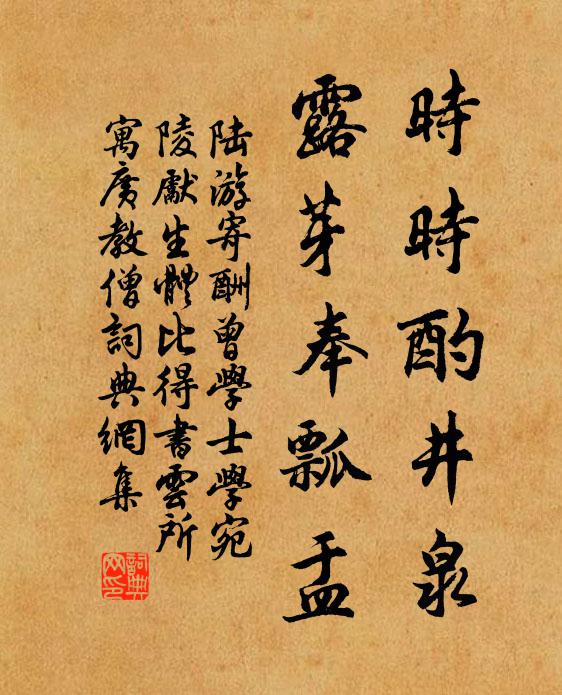 時時酌井泉
露芽奉瓢盂
陆游寄酬曾學士學宛
陵先生體比得書雲所
寓廣教僧詞典網集
詞典网印